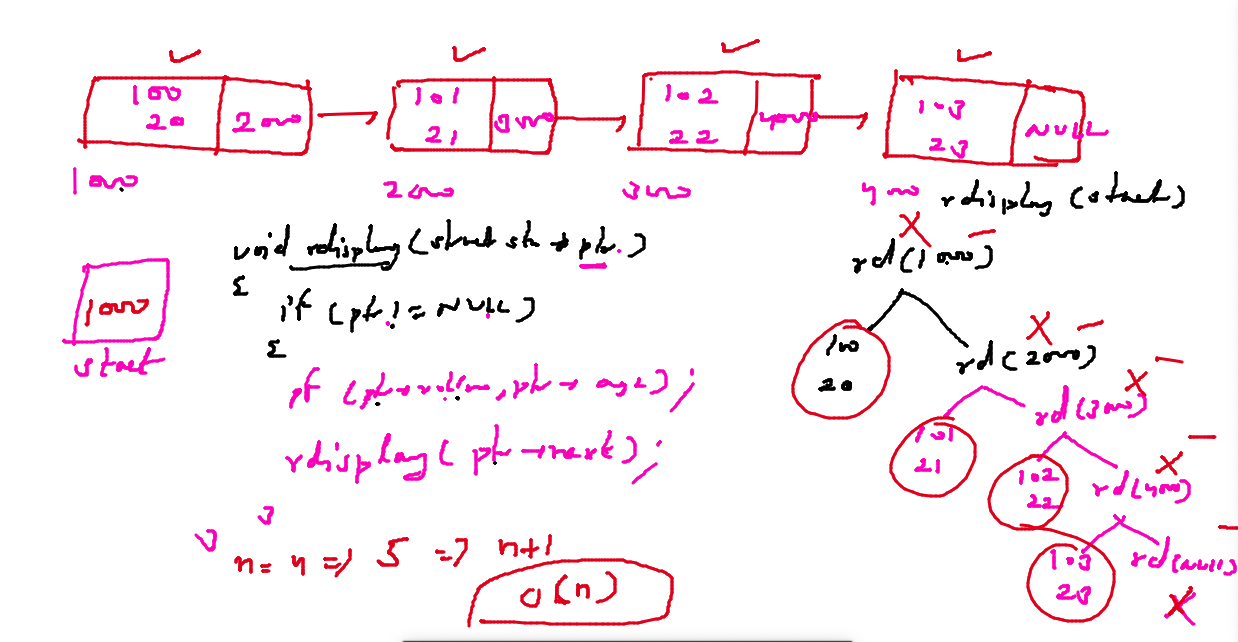 100
20
2000
101
21
3000
102
22
4000
103
23
NULL
1000
2000
3000
4000
rdisplay (start)
void rdisplay (struct stu * ptr)
{
if (ptr != NULL)
{
pf (ptr→rollno, ptr→age);
rdisplay ( ptr→next);
}
}
1000
start
rd(1000)
100
20
rd(2000)
101
21
rd(3000)
102
22
rd(4000)
103
23
rd(NULL)
n = 4 ⇒ 5 ⇒ n+1
O(n)